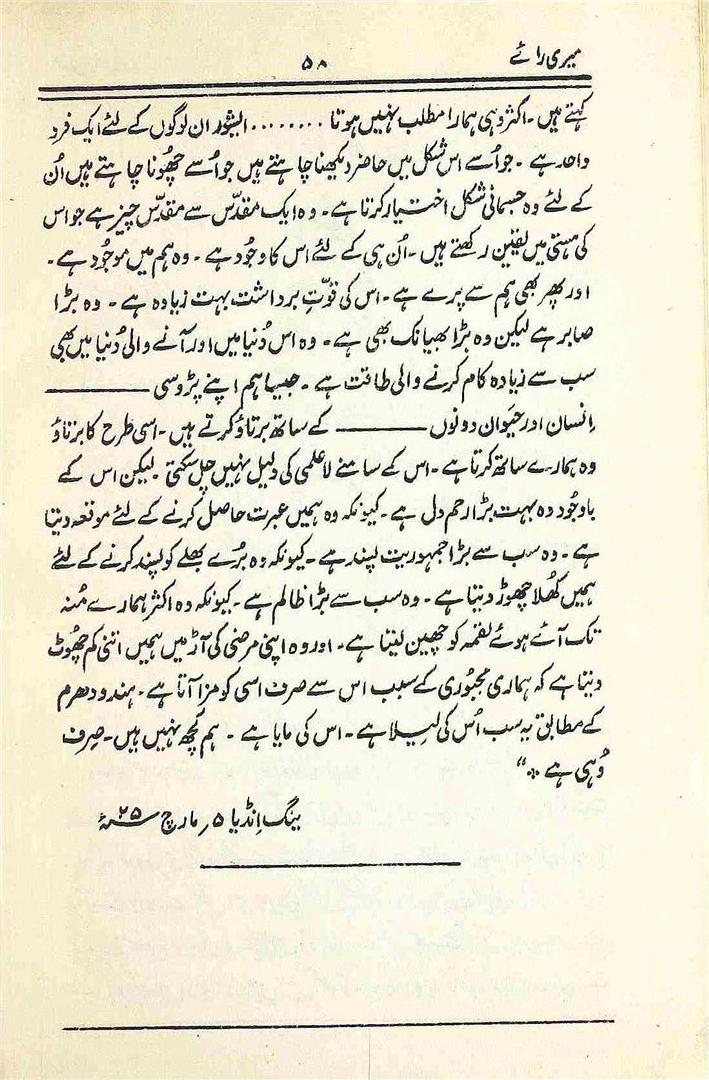 میری رائے
۵۸
کہتے ہیں۔ اکثر وہی ہمارا مطلب نہیں ہوتا ........ ایشور ان لوگوں کے لئے ایک فرد
واحد ہے ۔ جو اُسے اس شکل میں حاضر دیکھنا چاہتے ہیں جو اُسے چھُونا چاہتے ہیں اُن
کے لئے وہ جسمانی شکل اختیار کرتا ہے۔ وہ ایک مقدّس سے مقدّس چیز ہے جو اس
کی ہستی میں یقین رکھتے ہیں۔ اُن ہی کے لئے اس کا وجُود ہے ۔ وہ ہم میں موجُود ہے۔
اور پھر بھی ہم سے پرے ہے۔ اس کی قوّتِ برداشت بہت زیادہ ہے ۔ وہ بڑا
صابر ہے لیکن وہ بڑا بھیانک بھی ہے۔ وہ اس دُنیا میں اور آنے والی دُنیا میں بھی
سب سے زیادہ کام کرنے والی طاقت ہے ۔ جیسا ہم اپنے پڑوسی ———
اِنسان اور حیَوان دونوں ——— کے ساتھ برتاؤ کرتے ہیں۔ اسی طرح کا برتاؤ
وہ ہمارے ساتھ کرتا ہے۔ اس کے سامنے لاعلمی کی دلیل نہیں چل سکتی ۔ لیکن اس کے
باوجُود وہ بہت بڑا رحم دل ہے۔ کیونکہ وہ ہمیں عبرت حاصل کرنے کے لئے موقعہ دیتا
ہے ۔ وہ سب سے بڑا جمہوریت پسند ہے۔ کیونکہ وہ بُرے بھلے کو پسند کرنے کے لئے
ہمیں کھُلا چھوڑ دیتا ہے۔ وہ سب سے بڑا ظالم ہے ۔ کیونکہ وہ اکثر ہمارے مُنہ
تک آئے ہوئے لقمہ کو چھین لیتا ہے۔ اور وہ اپنی مرضی کی آڑ میں ہمیں اتنی کم چھُوٹ
دیتا ہے کہ ہماری مجبُوری کے سبب اس سے صرف اسی کو مزا آتا ہے۔ ہندو دھرم
کے مطابق یہ سب اُس کی لِیلا ہے۔ اس کی مایا ہے ۔ ہم کچُھ نہیں ہیں۔ صِرف
وُہی ہے ۔“
ینگ اِنڈیا ۵ مارچ ۲۵ء